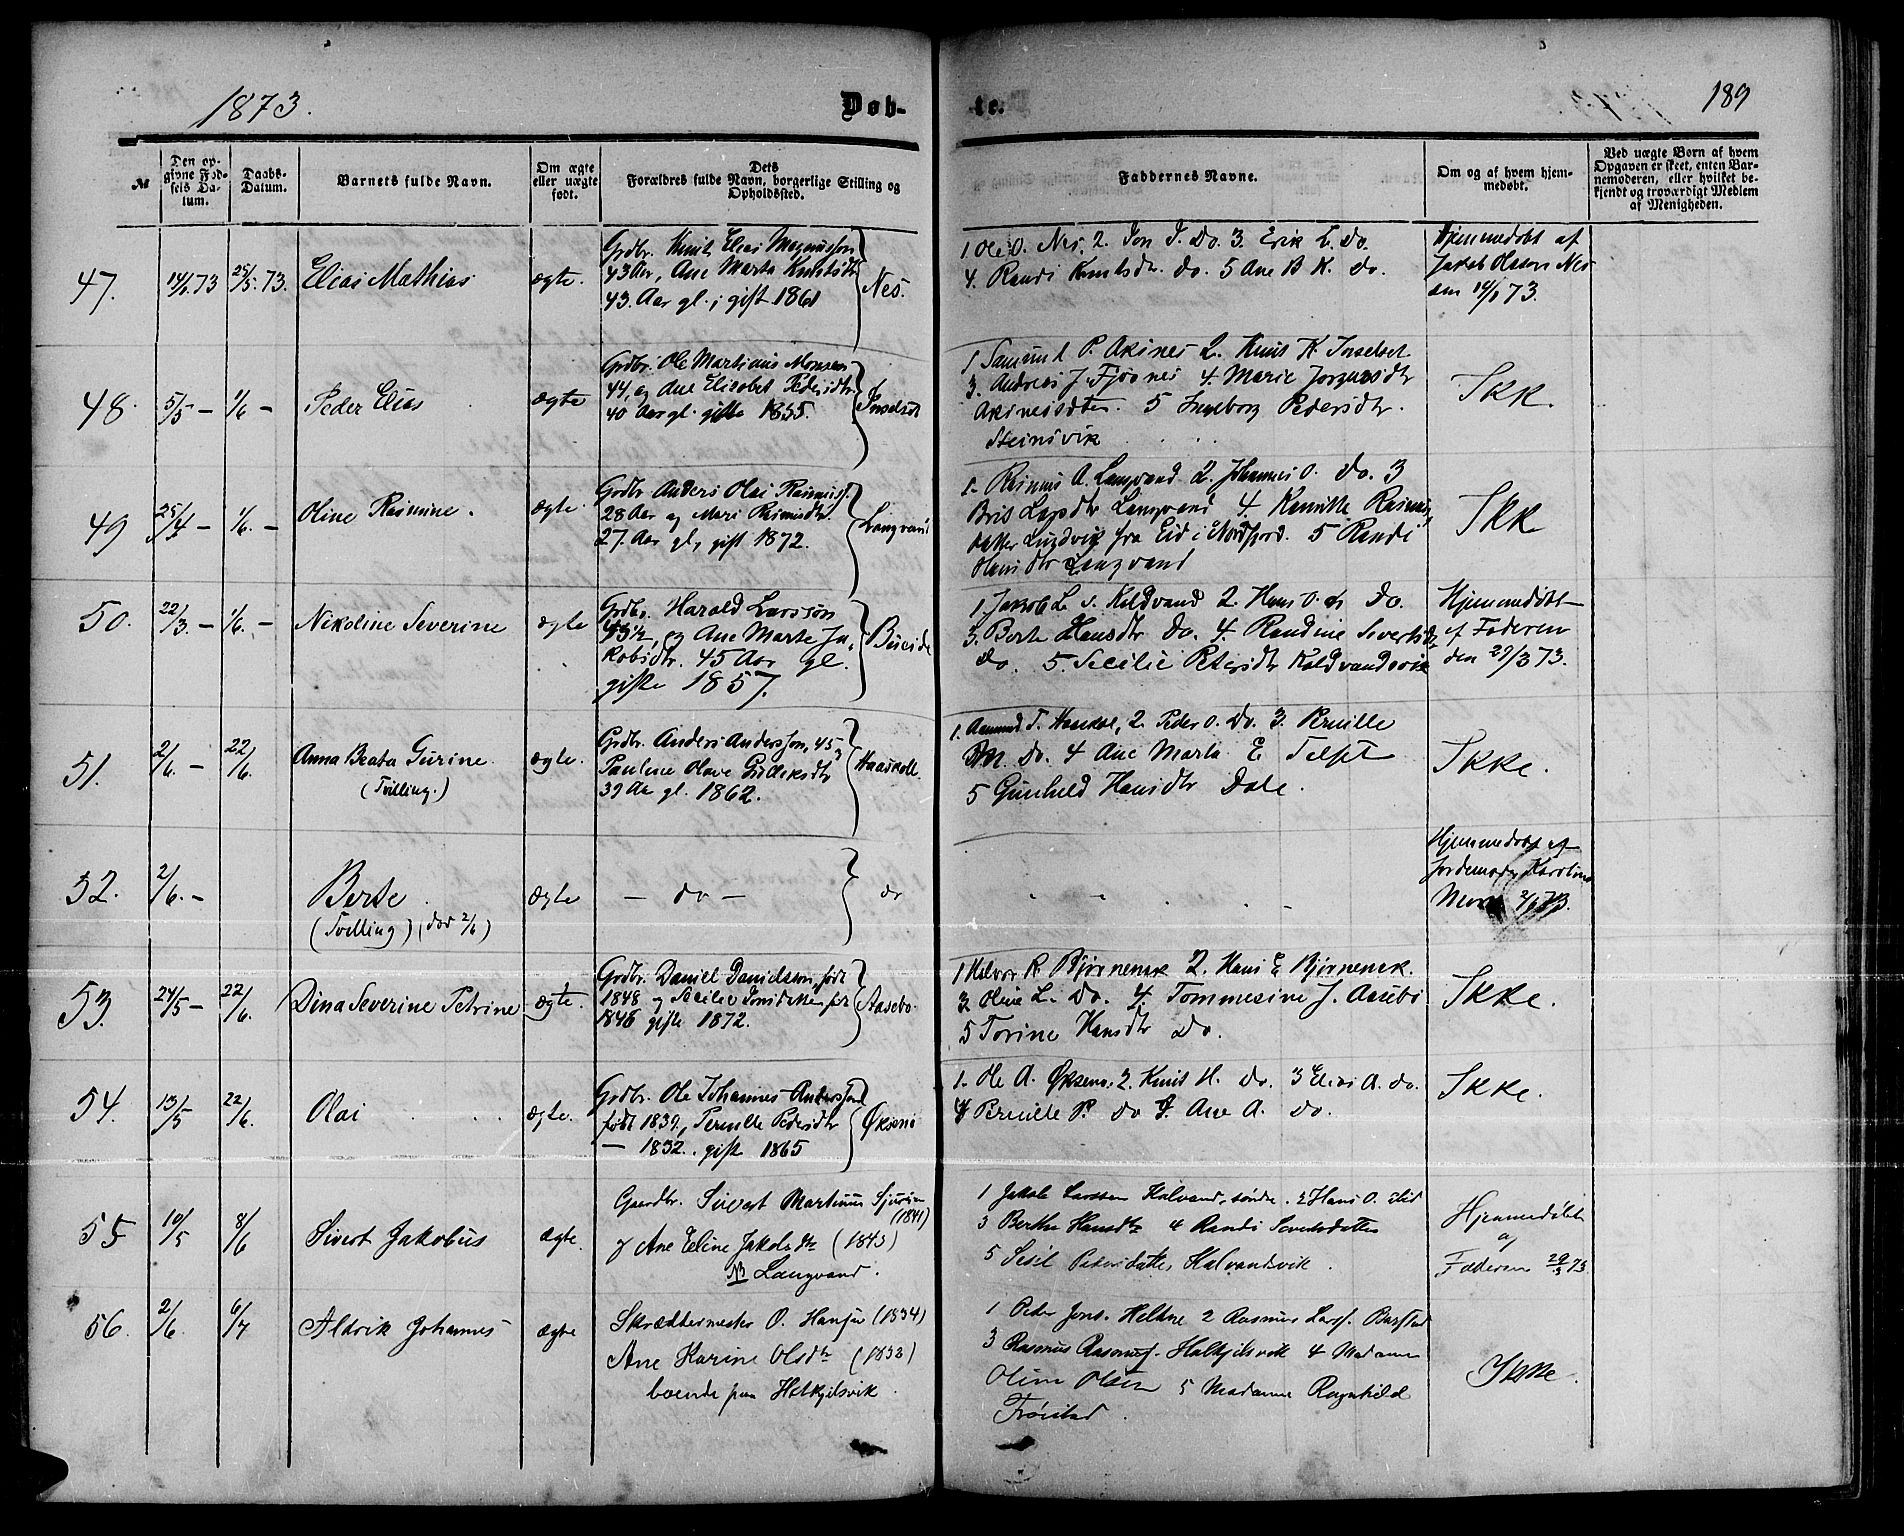 1873. Døb- te. 189
№
Den op-
givne Fød-
sels Da-
tum.
Daabs-
Datum.
Barnets fulde Navn.
Om ægte
eller uægte
født.
Dets
Forældres fulde Navn, borgerlige Stilling og
Opholdssted.
Faddernes Navne.
Om og af hvem hjem-
medøbt.
Ved uægte Børn af hvem
Opgaven er skeet, enten Bar-
nemoderen, eller hvilket be-
kjendt og troværdigt Medlem
af Menigheden.
47. 14/1 73 25/5. 73. Elias Mathias ægte.
Grdbr. Knut Elias Magnussøn
43 Aar, Ane Marta Knutsdtr
43. Aar gl. gift 1861
Nes.
1. Ole O. Nes, 2. Jon J. Do. 3. Erik E. Do.
4. Randi Knutsdr. do. 5 Ane B K. do.
Hjemmedøbt af
Jakob Olsen Nes
den 14/1 73.
48. 5/5 – 1/6 – Peder Elias ægte
Grdbr. Ole Martinus Monsen
44, og Ane Elisabet Pedersdtr
40 Aar gl. gifte 1855.
Inselset
1 Samund P. Aksnes 2. Knut K. Inselset
3. Andreas J. Fjøsnes 4. Marie Jorgensdtr
Aksnes 5 Ingeborg Pedersdtr.
Steinsvik
Ikk.
49 25/4 – 1/6. – Oline Rasmine. ægte.
Grdbr Anders Olai Rasmuss.
28 Aar og Mari Rasmusdtr.
27. Aar gl, gift 1872.
Langvand
1. Rasmus A. Langvand 2. Johannes O. Do. 3
Brit Langvand 4. Rasmus
datter fra Eid i Nordfjord. 5 Randi
Hansdtr Langvand
Ikk
50. 22/3. – 1/6. – Nikoline Severine ægte
Grdbr. Harald Larssøn
45½, og Ane Marte Ja-
kobsdtr. 45 Aar gl.
gifte 1857.
Bueide
1. Jakob L. s. Koldvand 2. Hans O. Do.
3. Berte Hansdtr Do. 4. Randine Sivertsdtr
do. 5 Secilie Petersdtr Koldvandsvik
Hjemmedøbt
af Faderen
den 29/3 73.
51. 2/6. – 22/6. Anna Beata Gurine. ægte.
(Tvilling.)
Grdbr. Anders Andersson, 45
Pauline Olave Fredriksdtr
39 Aar gl. 1862.
Haaskole
1. Aamund T. Haaskol, 2. Peder O. Do. 3. Pernille
M. Do. 4 Ane Marta E
5 Gunhild Hansdtr Dale.
Ikke.
52. 2/6. – Berte ægte – do – do
(Tvilling), død 2/6)
Hjemmedøbt af
Jordemoder Karoline
2/6 73.
53. 24/5 – 22/6. Dina Severine Petrine ægte.
Grdbr. Daniel Danielsen, født
1848 og Secilie født
1846 gifte 1872.
Aasebø
1 Halvor R. Bjørnenak 2. Hans E Bjørnenak.
3. Oline L. Do. 4. Tommesine J. Aasebø
5 Torine Hansdtr Do.
Ikke.
54. 13/5 22/6. Olai ægte.
Grdbr. Ole Johannes Anderssen
født 1839, Pernille Pedersdtr
– 1832. gift 1865
Øksenø
1. Ole A. Øksenø. 2. Knut H. do. 3 Elias A. do.
4 Pernille P. do 5. Ane A. do.
Ikke.
55 10/5 8/6 Sivert Jakobus ægte.
Gaardbr. Sivert Martinus Sjursen
(1841)
og Ane Eline Jakobsdtr (1843)
NB Langvand.
1 Jakob Larssen Kalvand, søndre. 2 Hans O. Eid
3 Berthe Hansdtr 4 Randi Sivertsdatter
5 Sesil Petersdatter Kalvandsvik.
Hjemmedøbt
af
Faderen 29/3 73.
56. 2/6 6/7 Aldrik Johannes ægte
Skræddermester O. Hansen (1834)
Ane Karine Olsdtr (1838)
boende paa Hatkjelsvik.
1 Peder Jons. Heltne 2 Rasmus Larss. Barstad
3 Rasmus Rasmuss. Halkjelsvik 4 Madame
Oline Olsen 5 Madame Ragnhild
Frøistad.
Ikke.